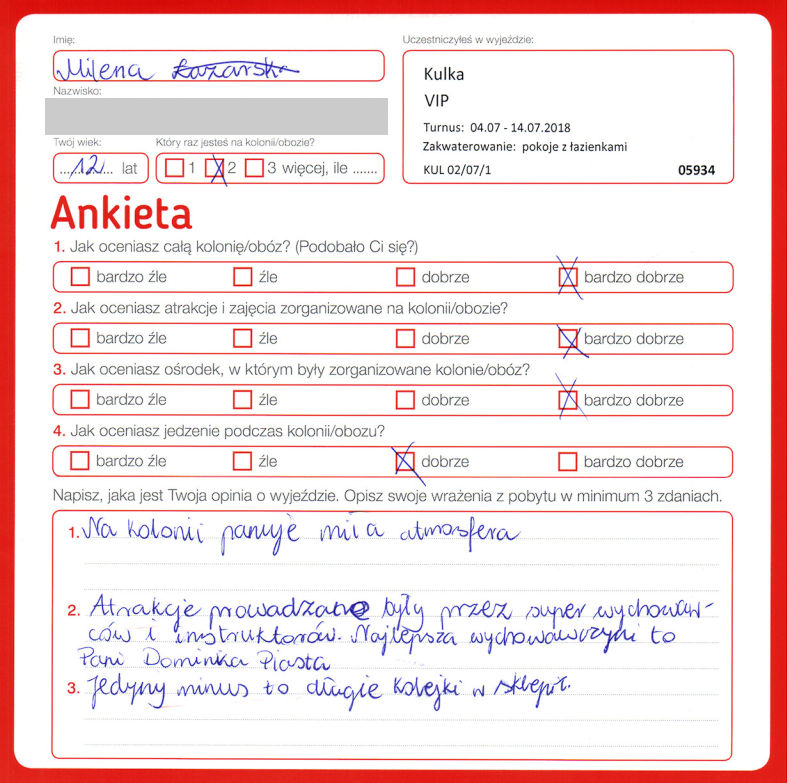 Imię:
Milena
Nazwisko:
Twój wiek:
Który raz jesteś na kolonii/obozie?
...12... lat
1 2 3 więcej, ile .......
Uczestniczyłeś w wyjeździe:
Kulka
VIP
Turnus: 04.07 - 14.07.2018
Zakwaterowanie: pokoje z łazienkami
KUL 02/07/1 05934
Ankieta
1. Jak oceniasz całą kolonię/obóz? (Podobało Ci się?)
bardzo źle źle dobrze bardzo dobrze
2. Jak oceniasz atrakcje i zajęcia zorganizowane na kolonii/obozie?
bardzo źle źle dobrze bardzo dobrze
3. Jak oceniasz ośrodek, w którym były zorganizowane kolonie/obóz?
bardzo źle źle dobrze bardzo dobrze
4. Jak oceniasz jedzenie podczas kolonii/obozu?
bardzo źle źle dobrze bardzo dobrze
Napisz, jaka jest Twoja opinia o wyjeździe. Opisz swoje wrażenia z pobytu w minimum 3 zdaniach.
1. Na kolonii panuje miła atmosfera
2. Atrakcje prowadzane były przez super wychowaw-
ców i instruktorów. Najlepsza wychowawczyni to
Pani Dominika Piasta
3. Jedyny minus to długie kolejki w sklepie.